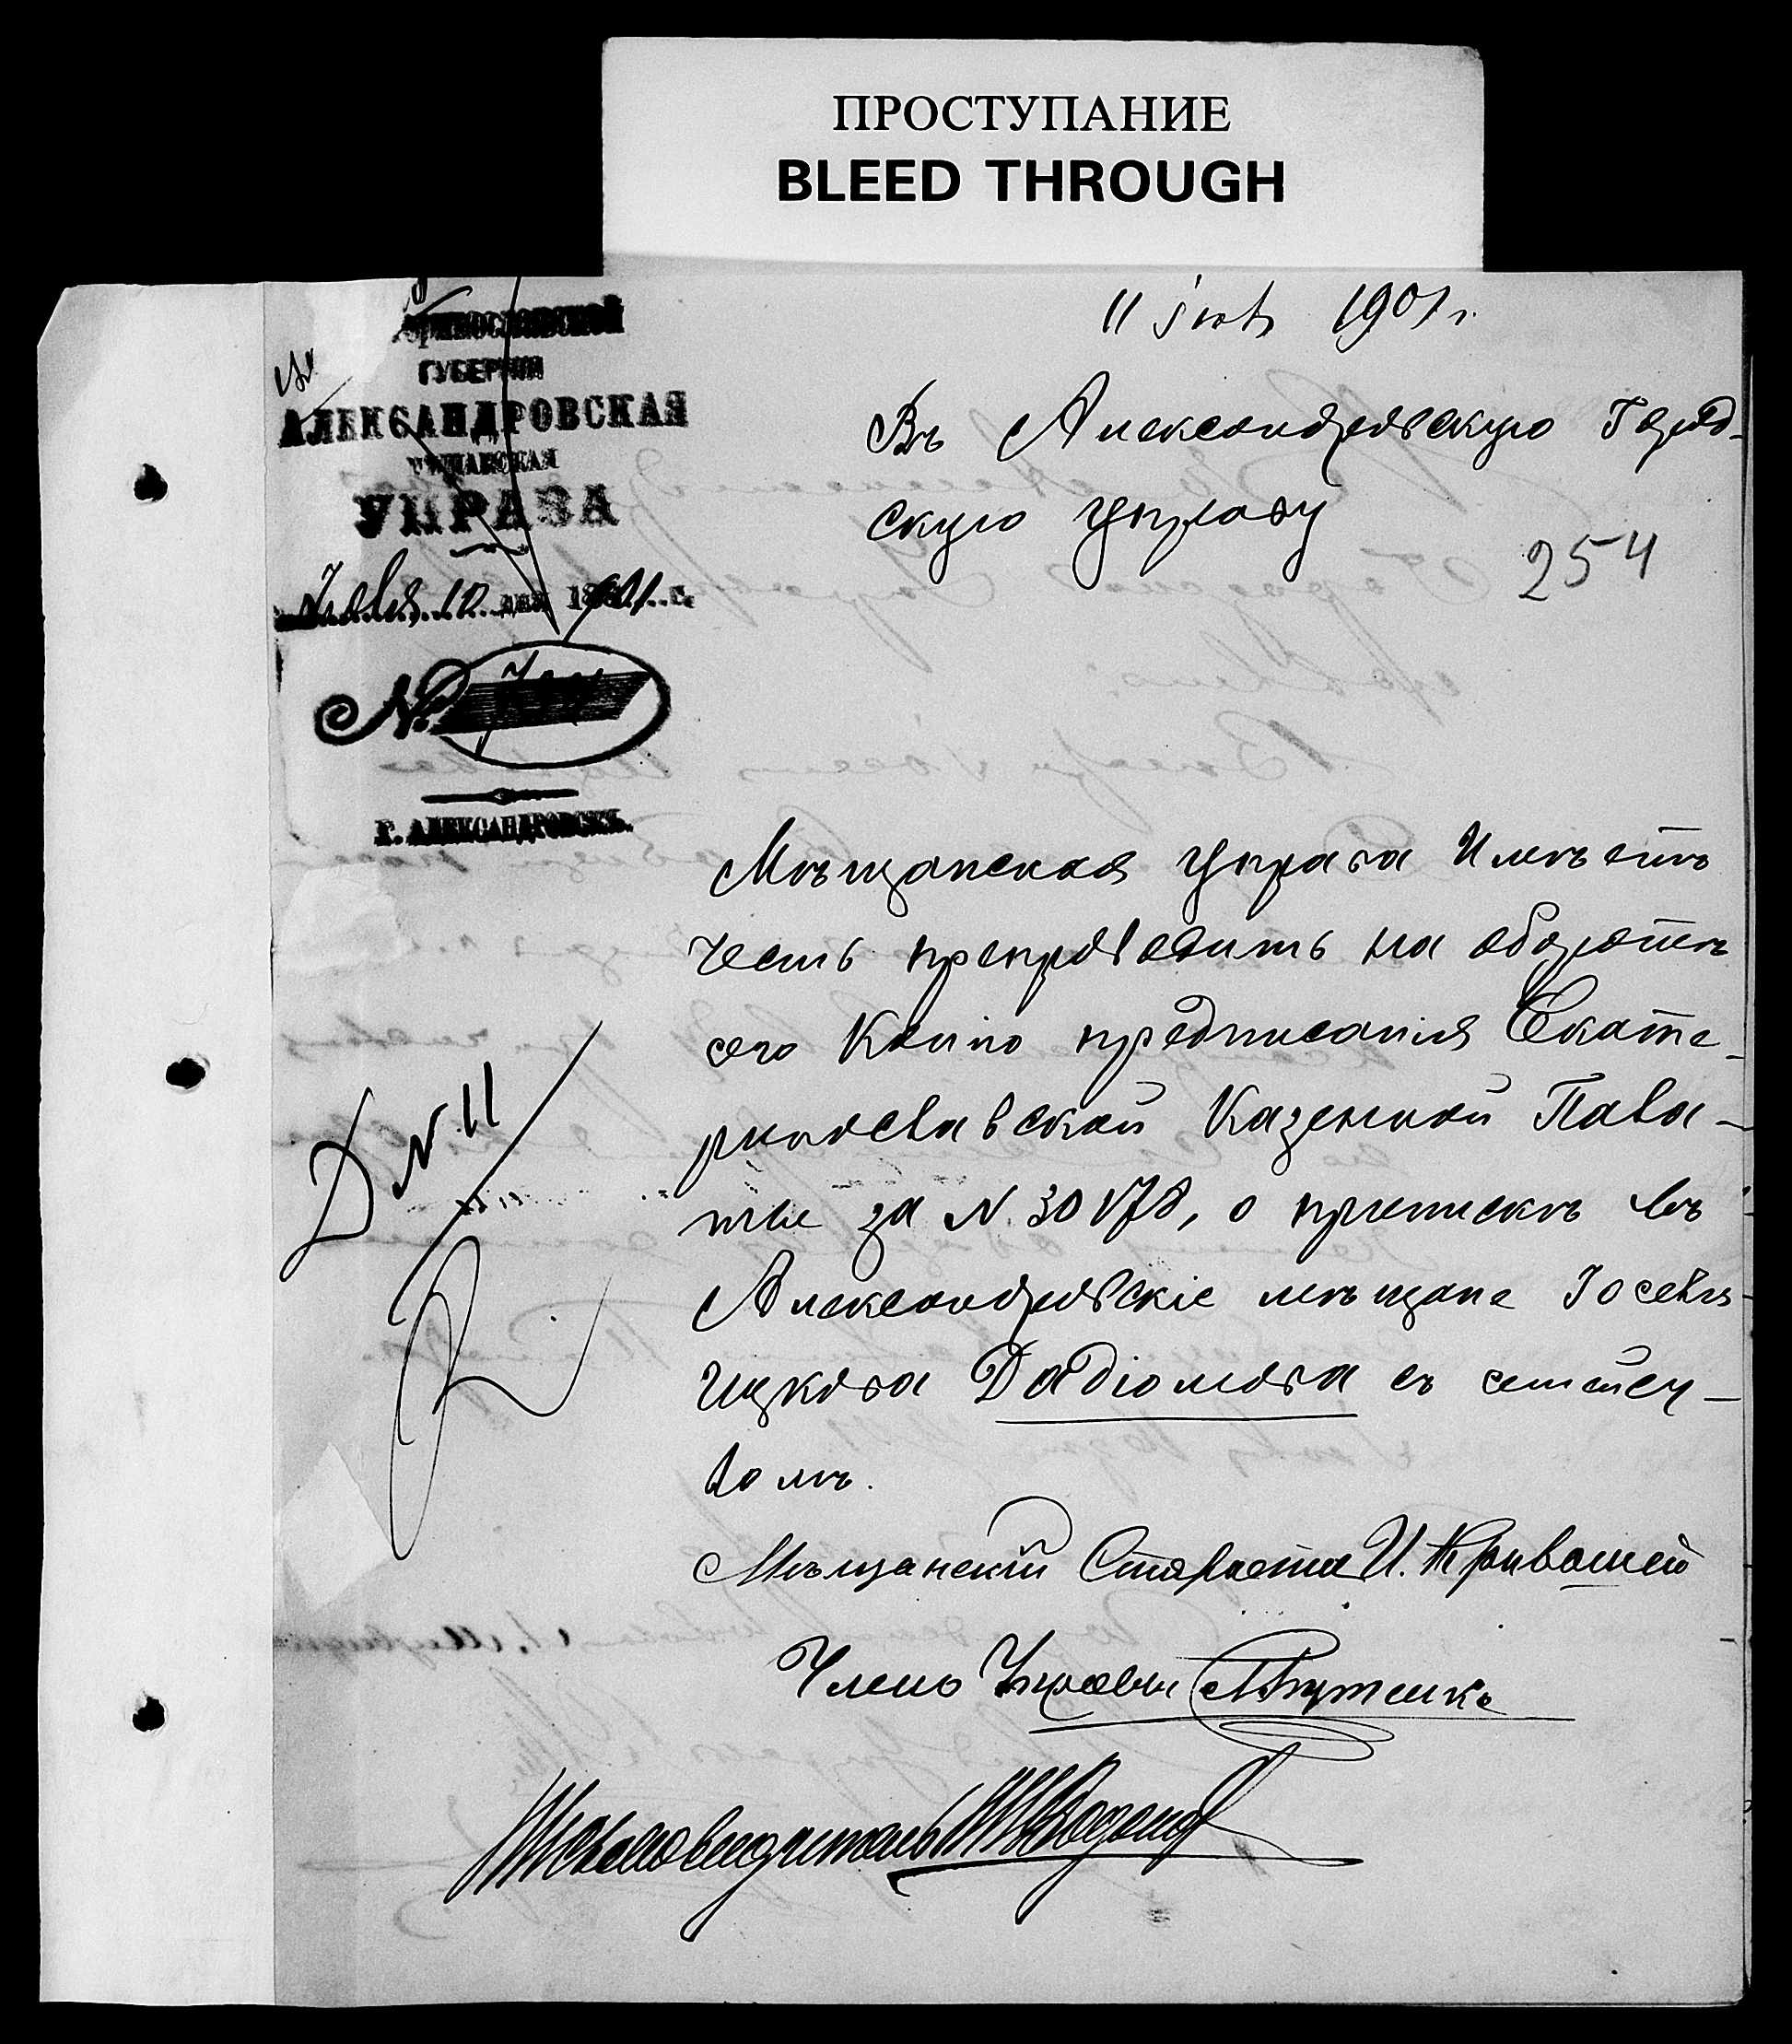 ПРОСТУПАНИЕ
BLEED THROUGH
11 іюля 1901 г.
ГУБЕРНІИ
АЛЕКСАНДРОВСКАЯ
МѢЩАНСКАЯ
УПРАВА
Іюля 10 дня 1901 г.
№
Г. АЛЕКСАНДРОВСКЪ.
Въ Александровскую Город-
скую Управу
254
Мѣщанская Управа имѣетъ
честь препроводить на оборотѣ
сего копію предписанія Екате-
ринославской Казенной Пала-
ты за № 30178, о припискѣ въ
Александровскіе мѣщане Іосевя
Ицкова Дадіомова съ семтей-
вомъ.
Д № 11
Мѣщанскій Староста И. Кривошей
Членъ Управы
Письмоводитель